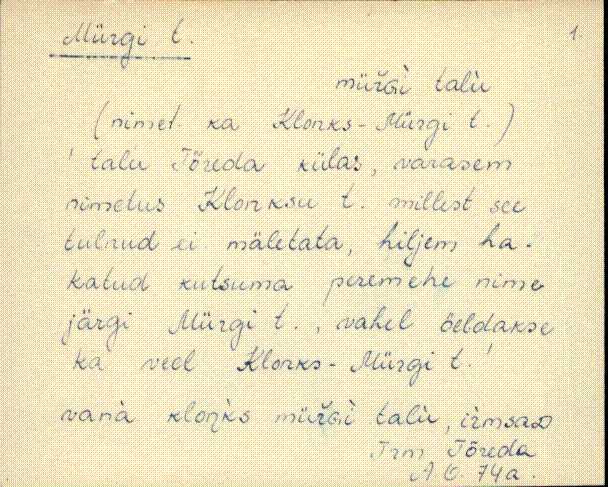 Mürgi t. 1.
müřGì talù
(nimet. ka Klonks-Mürgi t.)
' talu Tõreda külas, varasem
nimetus Klonksu t. millest see
tulnud ei mäletata, hiljem ha-
katud kutsuma peremehe nime
järgi Mürgi t., vahel öeldakse
ka veel Klonks-Mürgi t.'
vanà kloŋ̀ks müřGì talù,
Irm Tõreda
A O. 74a.